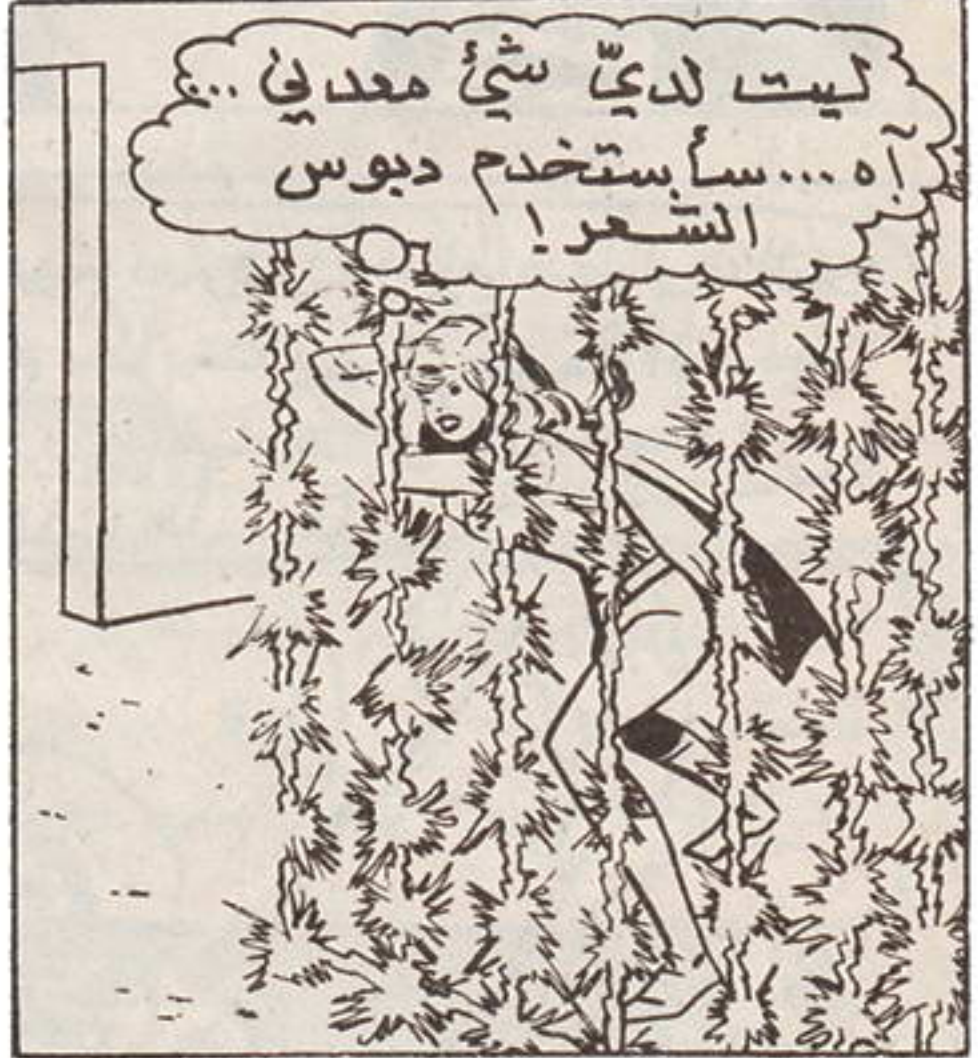 ليت لديّ شئ معدني...
آه...سأستخدم دبوس
الشعر!